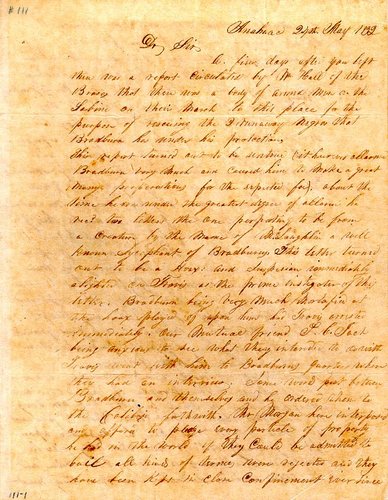 # 111
Anahuac 24th May 1832
Dr Sir
A few days after you left
there was a report circulated by Wm Hall of the
Brasos that there was a body of armed men on the
Sabine on their March to this place for the
purpose of rescuing the 2 Runaway Negros that
Bradburn has under his protection.
This report turned out to be it however alarmed
Bradburn very much and caused him to make a great
many preparations for the expected foe, about the
time he was under the greatest degree of alarm he
recd two letters the one purporting to be from
a Creation by the name of McLaughlin a well
known of Bradburns This letter turned
out to be a Hoax and Suspicion immediately
alighted on Travis as the prime instigator of this
letter. Bradburn being very Much Mortified at
the hoax played off upon him has Travis arrested
immediately our Mutual friend P. C. Jack
being anxious to see what they intended to do with
Travis went with him to Bradburns quarters where
they had an interview, Some words past between
Bradburn and themselves and he ordered them to
the forthwith. Mr Morgan here interposed
and offered to pledge every particle of property
he has in the world if they could be admitted to
bail all kinds of were rejected and they
have been kept in close confinement ever since